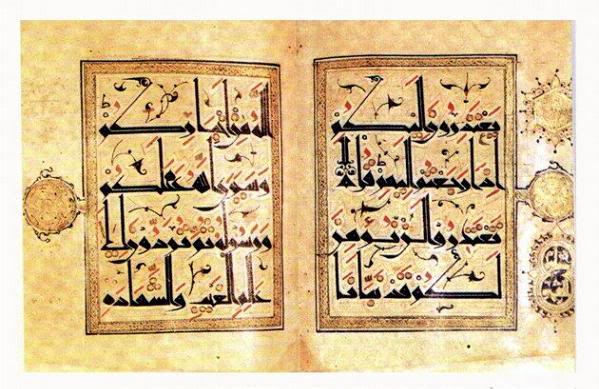 يعتذرون اليكم
اذا رجعتم اليهم قل لا
تعتذروا لن نؤمن
لكم قد نبأنا
الله من اخباركم
وسيرى الله عملكم
ورسوله ثم تردون الى
علم الغيب والشهادة